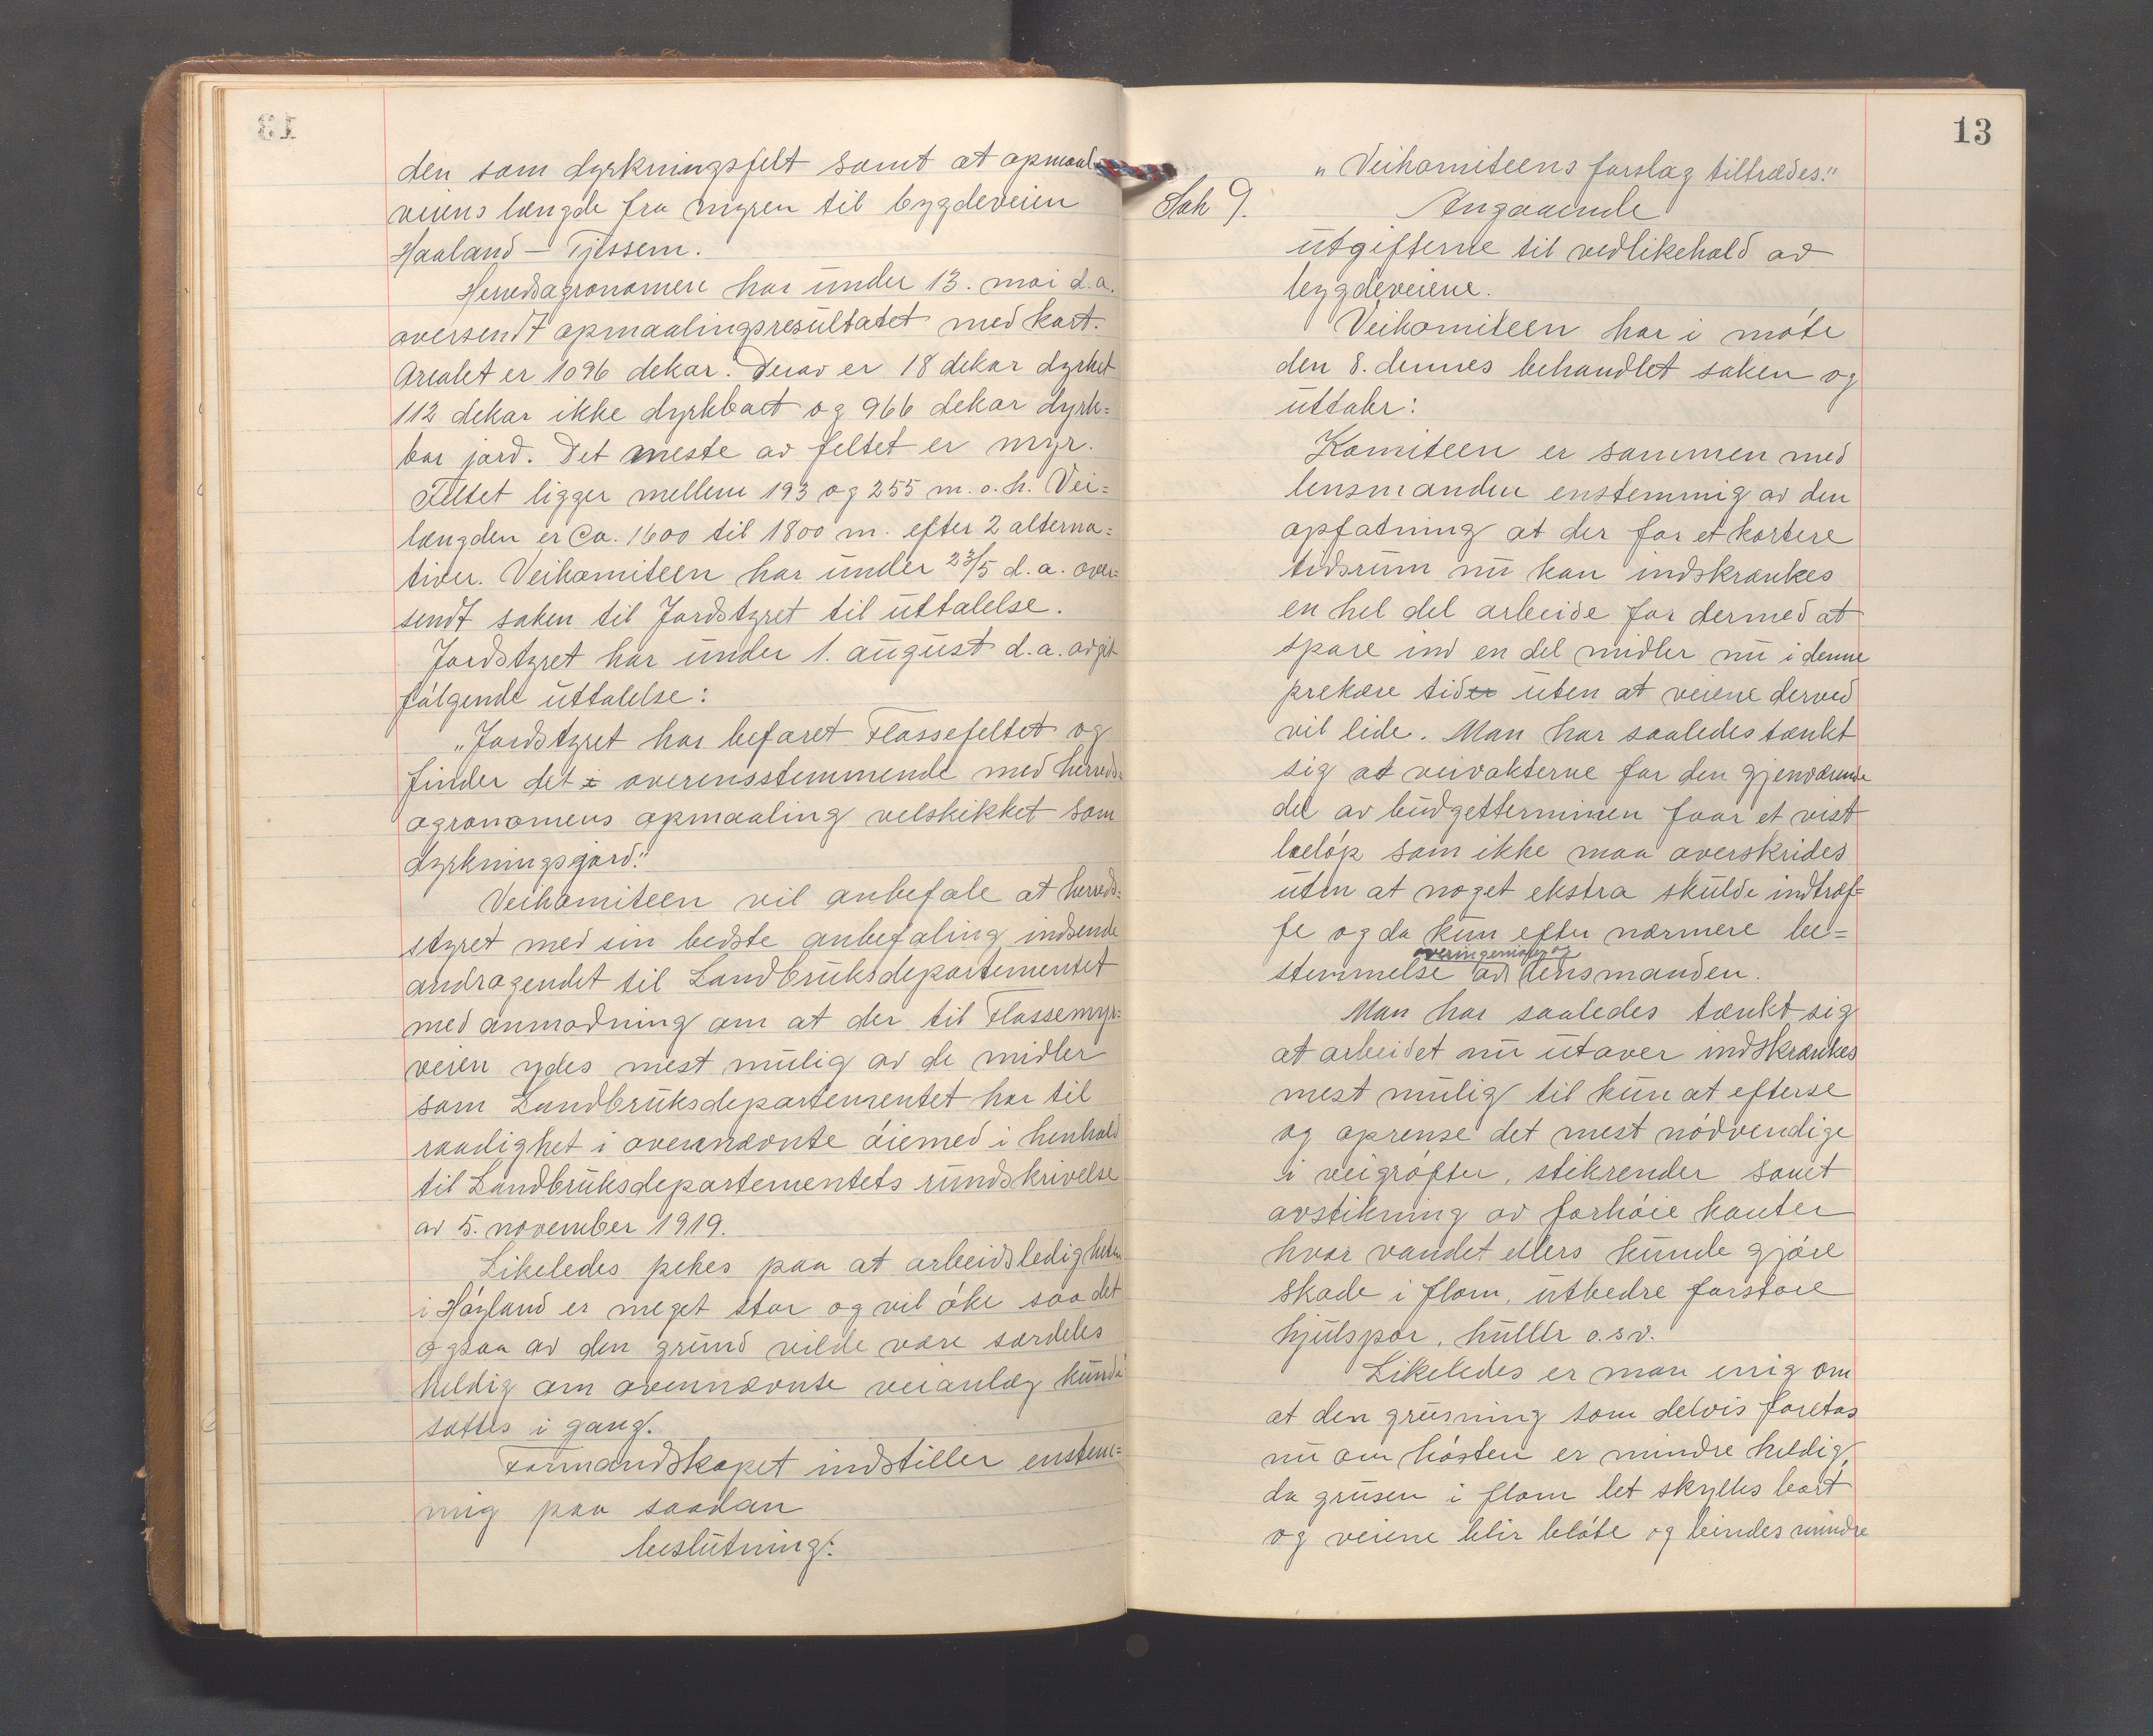 den som dyrkningsfelt samt at opmaale
veiens længde fra myren til bygdeveien
Haaland – Tjessem.
Herredsagronomen har under 13. mai d.a.
oversendt opmaalingsresultatet med kart.
Arealet er 1096 dekar. Derav er 18 dekar dyrket
112 dekar ikke dyrkbart og 966 dekar dyrk=
bar jord. Det meste av feltet er myr.
Feltet ligger mellem 193 og 255 m.o.h. Vei=
længden er Ca. 1600 til 1800 m. efter 2 alterna=
tiver. Veikomiteen har under 23/5 d.a. over=
sendt saken til Jordstyret til uttalelse.
Jordstyret har under 1. august d.a. avgit
følgende uttalelse:
„Jordstyret har befaret Flassefeltet og
finder det i overensstemmende med herreds=
agronomens opmaaling velskikket som
dyrkningsjord."
Veikomiteen vil anbefale at herreds=
styret med sin bedste anbefaling indsende
andragendet til Landbruksdepartementet
med anmodning om at der til Flassemyr=
veien ydes mest mulig av de midler
som Landbruksdepartementet har til
raadighet i ovennævnte øiemed i henhold
til Landbruksdepartementets rundskrivelse
av 5. november 1919.
Likeledes pekes paa at arbeidsledigheten
i Høyland er meget stor og vil øke saa det
ogsaa av den grund vilde være særdeles
heldig om ovennævnte veianlæg kunde
sættes i gang.
Formandskapet indstiller enstem=
mig paa saadan
beslutning:
13
„Veikomiteens forslag tiltrædes."
Sak 9. Angaaende
utgifterne til vedlikehold av
bygdeveiene.
Veikomiteen har i møte
den 8. dennes behandlet saken og
uttaler:
Komiteen er sammen med
lensmanden enstemmig av den
opfatning at der for et kortere
tidsrum nu kan indskrænkes
en hel del arbeide for dermed at
spare ind en del midler nu i denne
prekære tider uten at veiene derved
vil lide. Man har saaledes tænkt
sig at veivokterne for den gjenværende
del av budgetterminen faar et vist
beløp som ikke maa overskrides
uten at noget ekstra skulde indtræf=
fe og da kun efter nærmere be=
overingeniøren og
stemmelse av lensmanden.
Man har saaledes tænkt sig
at arbeidet nu utover indskrænkes
mest mulig til kun at efterse
og oprense det mest nødvendige
i veigrøfter, stikrender samt
avstikning av forhøie kanter
hvor vandet ellers kunde gjøre
skade i flom, utbedre forstore
hjulspor, huller o.s.v.
Likeledes er man enig om
at den grusning som delvis foretas
nu om høsten er mindre heldig,
da grusen i flom let skylles bort
og veiene blir bløte og bindes mindre